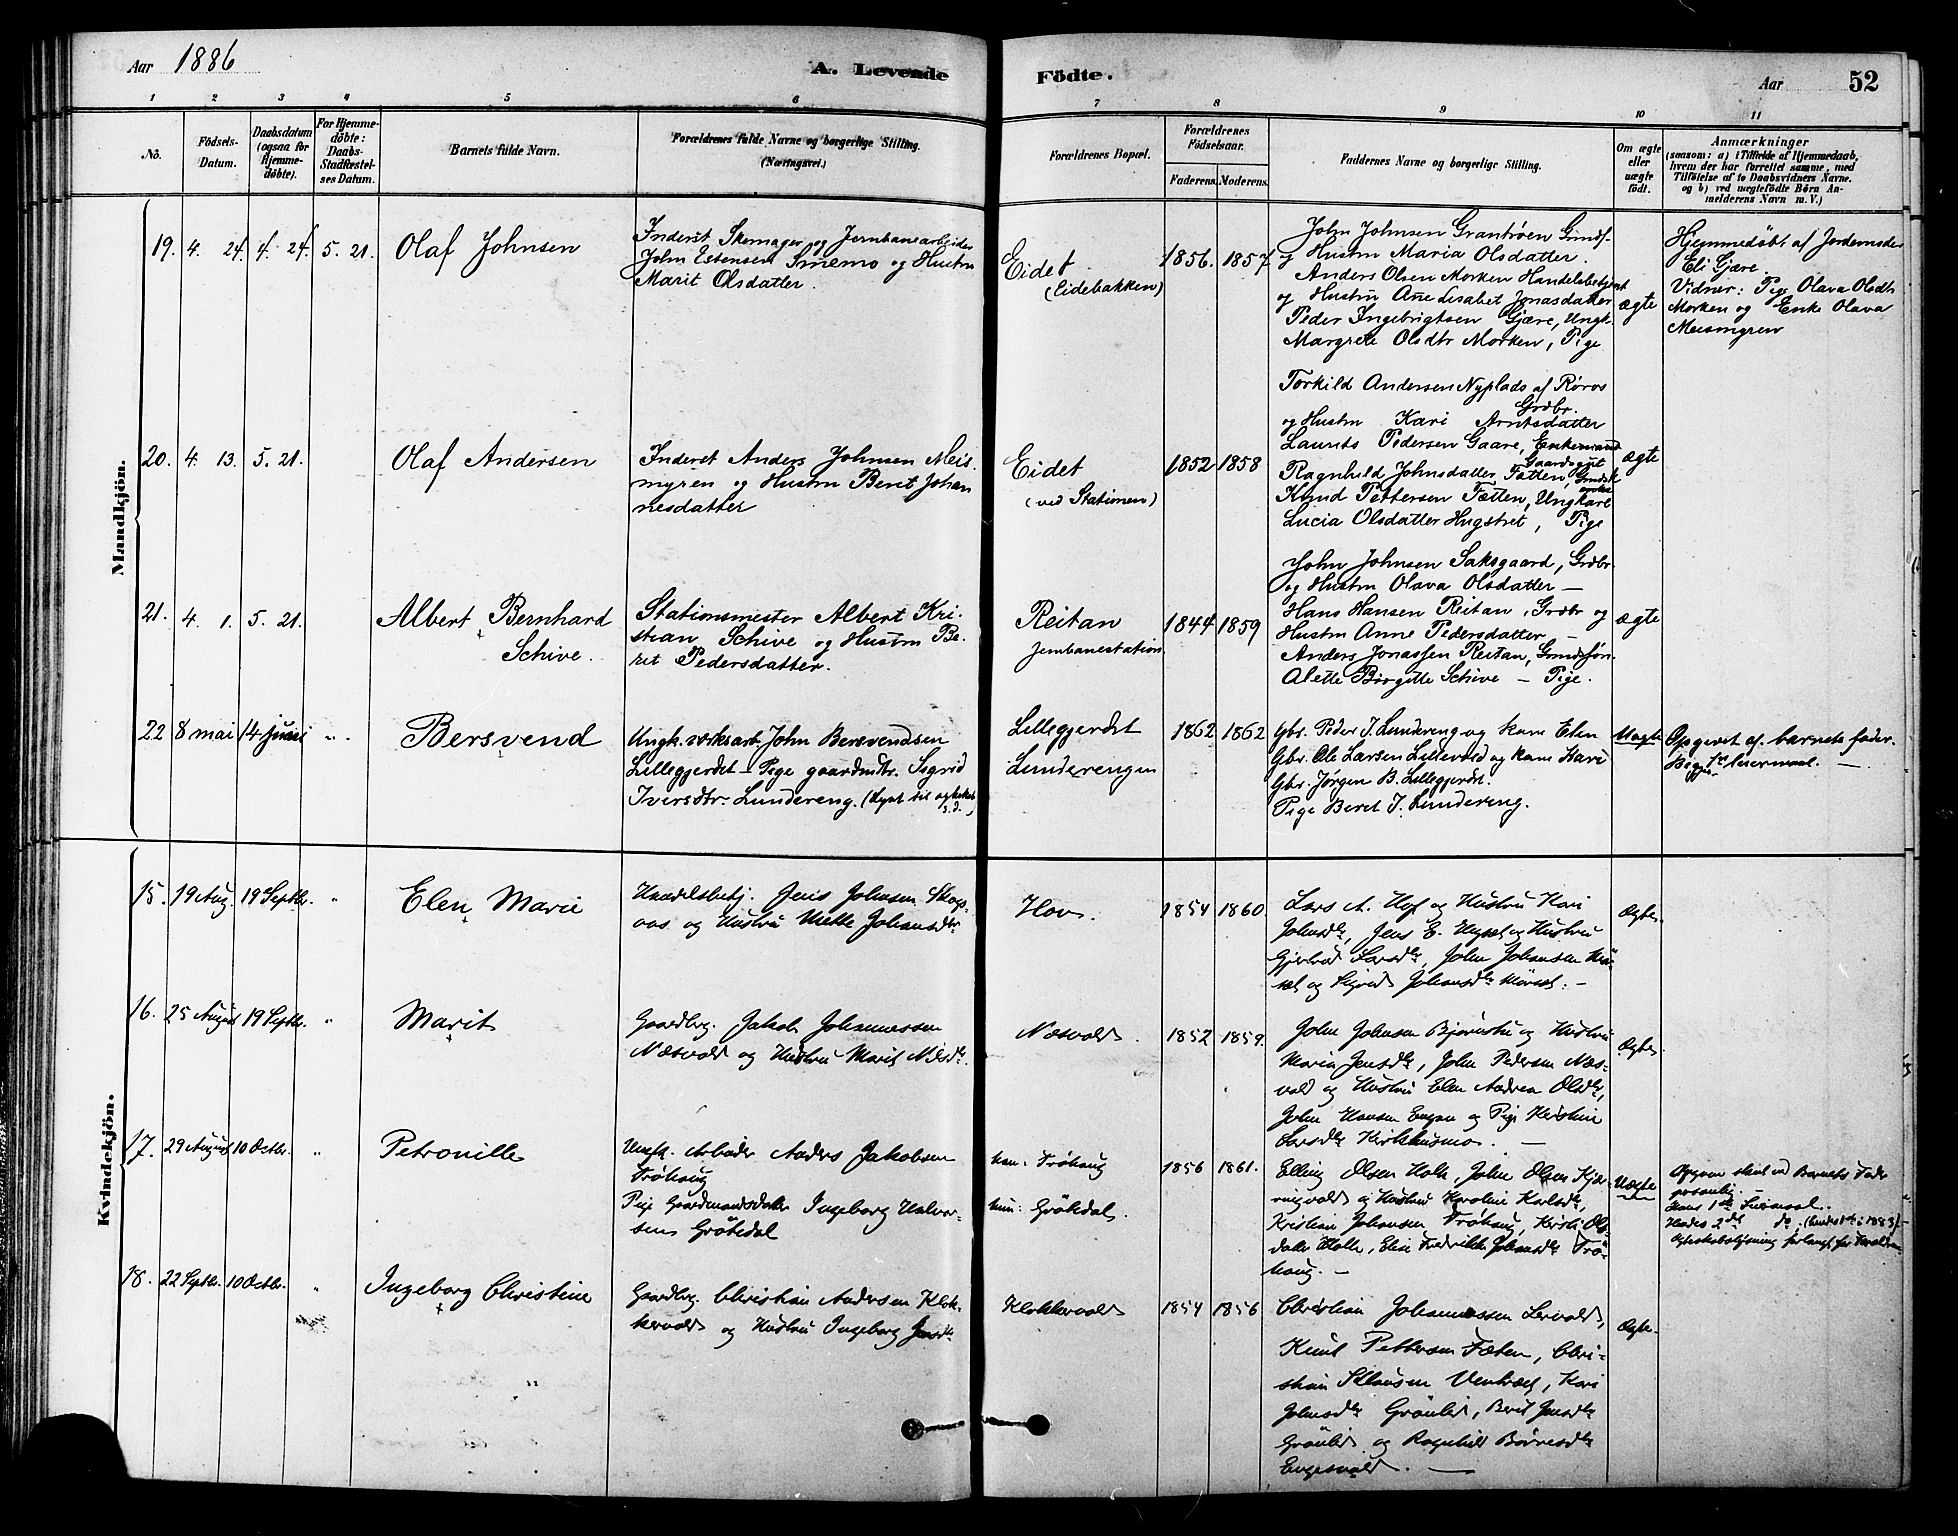 Aar 1886
A. Levende
Födte.
Aar
52
1 2 3 4 5 6 7 8 9 10 11
No.
Födsels-
Datum.
Daabsdatum
(ogsaa for
Hjemme-
döbte).
For Hjemme-
döbte:
Daabs-
Stadfæstel-
ses Datum.
Barnets fulde Navn.
Forældrenes fulde Navne og borgerlige Stilling.
(Næringsvei.)
Forældrenes Bopæl.
Forældrenes
Födselsaar.
Faderens.
Moderens.
Faddernes Navne og borgerlige Stilling.
Om ægte
eller
uægte
födt.
Anmærkninger
(saasom: a) i Tilfælde af Hjemmedaab,
hvem der har forrettet samme, med
Tilföielse af to Daabsvidners Navne.
og b) ved uægtefödte Börn An-
melderens Navn m. V.)
Mandkjön.
19. 4. 24. 4. 24. 5. 21.
Olaf Johnsen
Inderst Skomager og Jernbanearbeider
John Estensen Smemo og Hustru
Marit Olsdatter.
Eidet
(Eidebakken)
1856. 1857
John Johnsen Grantrøen Grindf.
og Hustru Maria Olsdatter.
Anders Olsen Morken Handelsbetjent
og Hustru Ane Lisabet Jonasdatter
Peder Ingebrigtsen Gjære, Ungk.
Margrete Olsdtr Morken, Pige
ægte
Hjemmedøbt af Jordemoder
Eli Gjære.
Vidner: Pige Olava Olsdtr
Morken og Enke Olava
Meismyren
20. 4. 13. 5. 21.
Olaf Andersen
Inderst Anders Johnsen Meis-
myren og Hustru Berit Johan
nesdatter
Eidet
(ved Stationen)
1852 1858
Torkild Andersen Nyplads af Røros
Grdbr.
og Hustru Kari Arntsdatter
Laurits Pedersen Gaare, Enkemand
Ragnhild Johnsdatter Fætten
Knud Pettersen Fætten, Ungkarl
Lucia Olsdatter Hugstret, Pige
ægte
21. 4. 1. 5. 21.
Albert Bernhard
Schive.
Stationsmester Albert Kri-
stian Schive og Hustru Be-
ret Pedersdatter.
Reitan
Jernbanestation
1844 1859
John Johnsen Saksgaard, Grdbr.
og Hustru Olava Olsdatter —
Hans Hansen Reitan, Grdbr og
Hustru Anne Pedersdatter —
Anders Jonassen Reitan,
Alette Birgitte Schive — Pige.
ægte
22 8 mai 14 juni " .
Bersvend
Ungk. verksarb. John Bersvendsen
Lilleggjerdet – Pige gaardmdtr. Sigrid
Iversdtr. Lundereng.
Lilleggjerdet
Lunderengen
1862 1862
Gbr. Peder I. Lundereng og kone Elen
Gbr. Ole Larsen Lillevold og kone Kari
Gbr. Jørgen B. Lilleggjerdet.
Pige Beret I. Lundereng.
Uægte
Opgivet af barnets fader.
Begges 1ste leiermaal. —
Kvindekjön.
15. 19 Aug. 19 Septbr. "
Elen Marie
Handelsbetj. Jens Johnsen Skogs-
aas og Hustru Mette Johansdtr.
Hov.
1854 1860.
Lars A. Hof og Hustru Kari
Johnsdtr, Jens E. og Hustru
Gjertrud Larsdtr, John Johansen Mör-
set og Sigrid Johansdtr Mörset. —
Ægte.
16. 25 August 19 Septbr. "
Marit
Gaardbrg. Jakob Johannessen
Næsvold og Hustru Marit Nilsdtr.
Næsvold.
1852 1859.
John Johnsen Bjørnstu og Hustru
Maria Jensdtr, John Pedersen Næs-
vold og Hustru Elen Andrea Olsdtr,
John Hansen Engan og Pige Kirstine
Larsdtr Kirkhusmo. —
Ægte.
17. 29 August 10 Octbr. "
Petronille
Ungk. Arbeider Anders Jakobsen
Tröhaug
Pige Gaardmandsdatter Ingeborg Halvor-
sen Grötedal
han: Tröhaug
hun: Grötedal.
1856 1861.
Elling Olsen Holte, John Olsen Kjær-
ringvold og Hustru Karoline Karlsdtr,
Kristian Johansen Tröhaug, Kirsti Ols-
datter Holte, Elise Fredrikke Johansdtr Trö-
haug. —
Uægte
Opgivet ved Barnets Fader
personlig.
Hans 1ste Leiermaal.
Hendes 2det do. (hendes 1ste i 1883). —
18. 22 Septbr. 10 Octbr. "
Ingeborg Christine
Gaardbrg. Christian Andersen Klok-
kervold og Hustru Ingeborg Jensdtr
Klokkervold
1854 1856
Christian Johannessen Lervold,
Knut Pettersen Fæten, Chri-
stian Ventræet, Kari
Johnsdtr Grönlid, Berit Jensdtr
Grönlid og Ragnhild Börresdtr
Engesvold. —
Ægte.